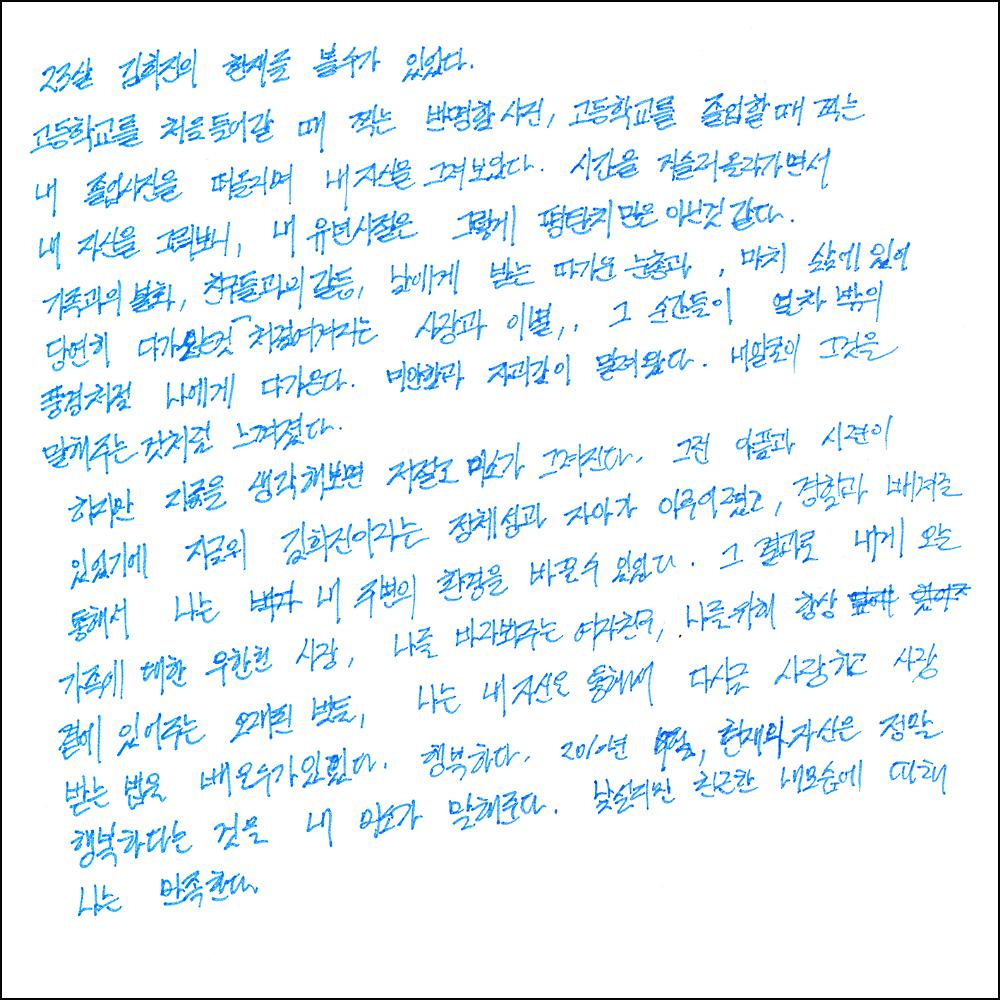 23살 김희진의 현재를 볼수가 있었다.
고등학교를 처음 들어갈 때 찍는 반명함 사진, 고등학교를 졸업할 때 찍는
내 졸업사진을 떠올리며 내 자신을 그려보았다. 시간을 거슬러 올라가면서
내 자신을 그려보니, 내 유년시절은 그렇게 평탄치 만은 아닌것 같다.
가족과의 불화, 친구들과의 갈등, 남에게 받는 따가운 눈총과, 마치 삶에 있어
당연히 다가왔던것 처럼 여겨지는 사랑과 이별,. 그 순간들이 열차 밖의
풍경처럼 나에게 다가온다. 미안함과 자괴감이 밀려왔다. 내 얼굴이 그것을
말해주는 것처럼 느껴졌다.
하지만 지금을 생각해보면 저절로 미소가 그려진다. 그런 아픔과 시련이
있었기에 지금의 김희진이라는 정체성과 자아가 이루어졌고, 경험과 배려를
통해서 나는 내 주변의 환경을 바꿀수 있었다. 그 결과로 내게 오는
가족에 대한 무한한 사랑, 나를 바라봐주는 여자친구, 나를 위해 항상
곁에 있어주는 오래된 벗들, 나는 내 자신을 통해서 다시금 사랑하고 사랑
받는 법을 배울수가 있었다. 행복하다. 2010년 현재의 자신은 정말
행복하다는 것을 내 미소가 말해준다. 낯설지만 친근한 내모습에 대해
나는 만족한다.